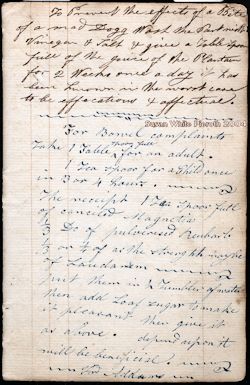 To Prevent the effects of a Bite
of a mad Dogg Wash the Part with
Vinegar & Salt & give a Table Spoon
full of the juice of the Plantan
for 2 Weeks once a day it has
been known in the worst case
to be effecatious & affectual.
Susan White Pieroth 2004
For Bowel complaints
Take 1 Table Spoon full for an adult.
1 Tea Spoon for a Child once
in 3 or 4 hours
The receipt 1 Tea Spoon full
of calcined Magnetia
Do of pulverised Reubarb
or as the strength maybe
of Laudanum
put them in ½ Tumbler of water
then add Loaf sugar to make
it pleasant then give it
as above. depend upon it
will be beneficial
Addams